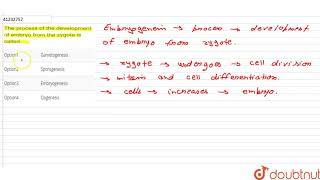 41232757
The process of the development
of embryo from the zygote is
called
Option1 Gametogenesis
Option2 Sporogenesis
Option3 Embryogenesis
Option4 Oogenesis
Embryogenesis → process → development
of embryo from zygote.
→ zygote → undergoes → cell division
→ mitosis and cell differentiation.
→ cells → increases → embryo.
doubtnut